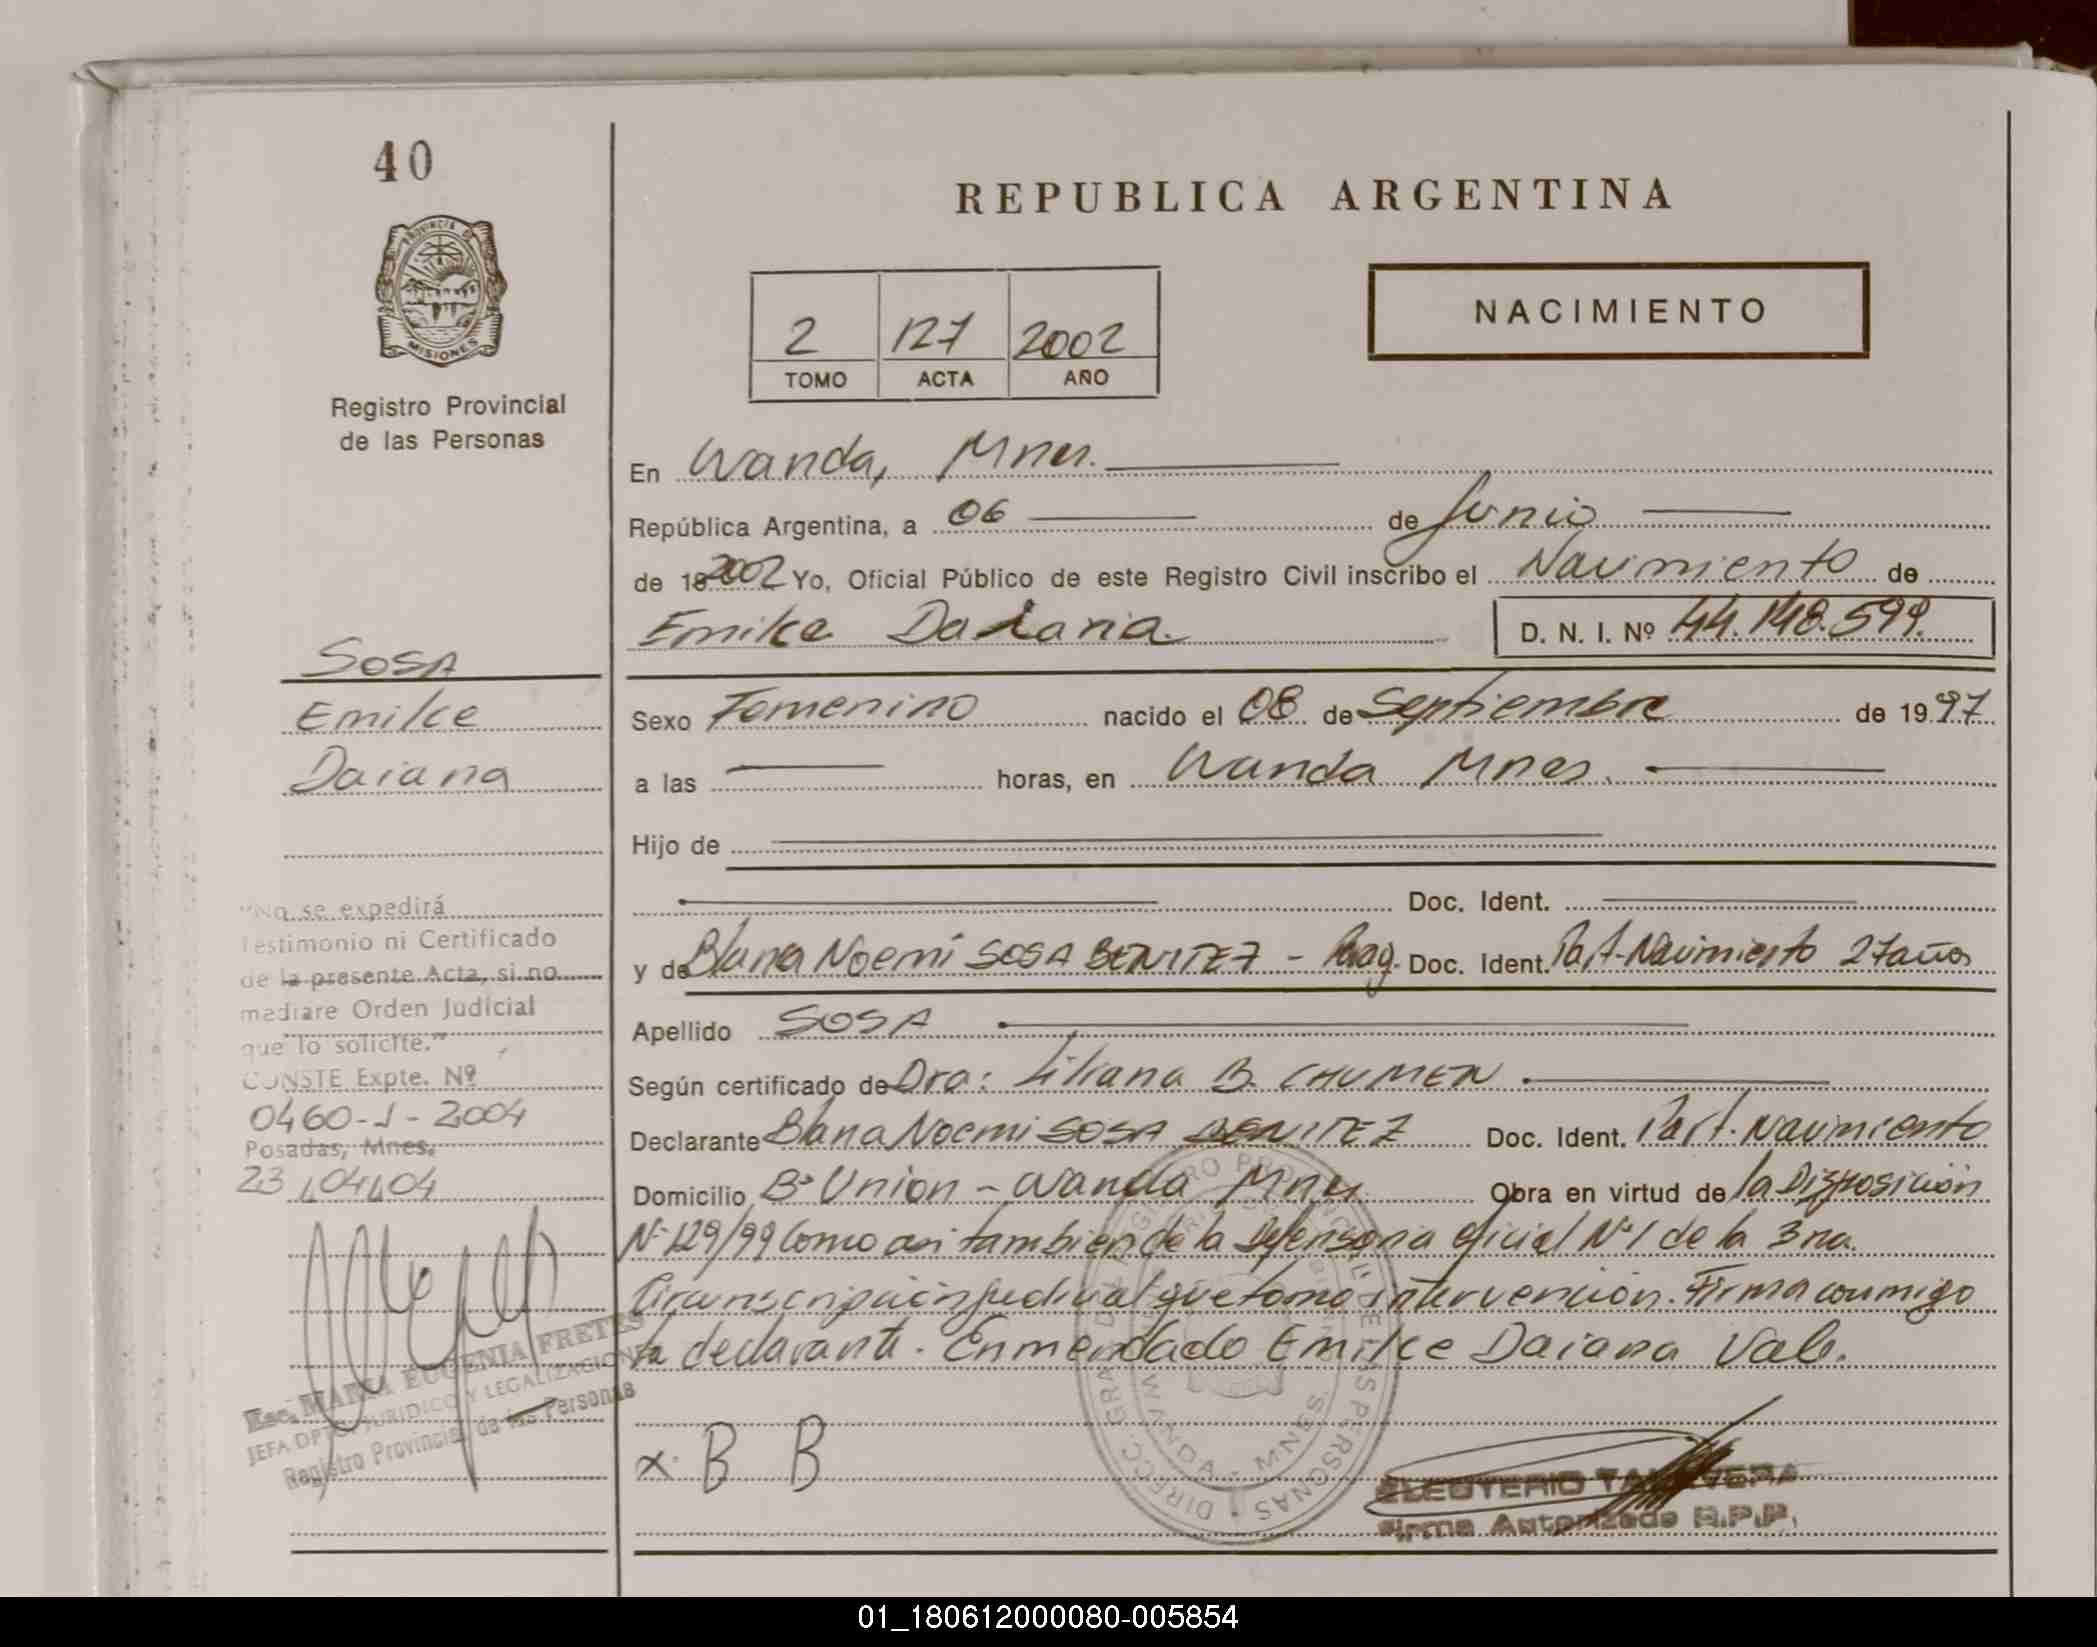 40
REPUBLICA ARGENTINA
PROVINCIA DE
MISIONES
Registro Provincial
de las Personas
2 127 2002
TOMO ACTA AÑO
NACIMIENTO
En Wanda, Mnes.
República Argentina, a 06 de Junio
de 19 2002 Yo, Oficial Público de este Registro Civil inscribo el Nacimiento de
Emilce Daiana D. N. I. Nº 44.148.599.
SOSA
Emilce
Daiana
Sexo Femenino nacido el 08 de Septiembre de 1997
a las horas, en Wanda Mnes.
Hijo de
Doc. Ident.
y de Blana Noemi SOSA BENITEZ - Parag. Doc. Ident. Part. Nacimiento 27 años
Apellido SOSA
Según certificado de Dra: Liliana B. CHUMEN
Declarante Blana Noemi SOSA BENITEZ Doc. Ident. Part. Nacimiento
Domicilio Bº Union - Wanda Mnes. Obra en virtud de la Disposición
Nº 129/99 Como asi tambien de la Defensoria oficial Nº 1 de la 3ra.
Circunscripción Judicial que tomo intervención. Firma conmigo
la declarante. Enmendado Emilce Daiana Vale.
"No se expedirá
Testimonio ni Certificado
de la presente Acta, si no
mediare Orden Judicial
que lo solicite."
CONSTE Expte. Nº
0460-J-2004
Posadas, Mnes.
23/04/04
Esc. MARIA EUGENIA FRETES
JEFA DPTO. JURIDICO Y LEGALIZACIONES
Registro Provincial de las Personas
x. B B
DIRECC. GRAL. DEL REGISTRO PROVINCIAL DE LAS PERSONAS
WANDA - MNES.
ELEUTERIO TALAVERA
Firma Autorizada R.P.P.
01_180612000080-005854